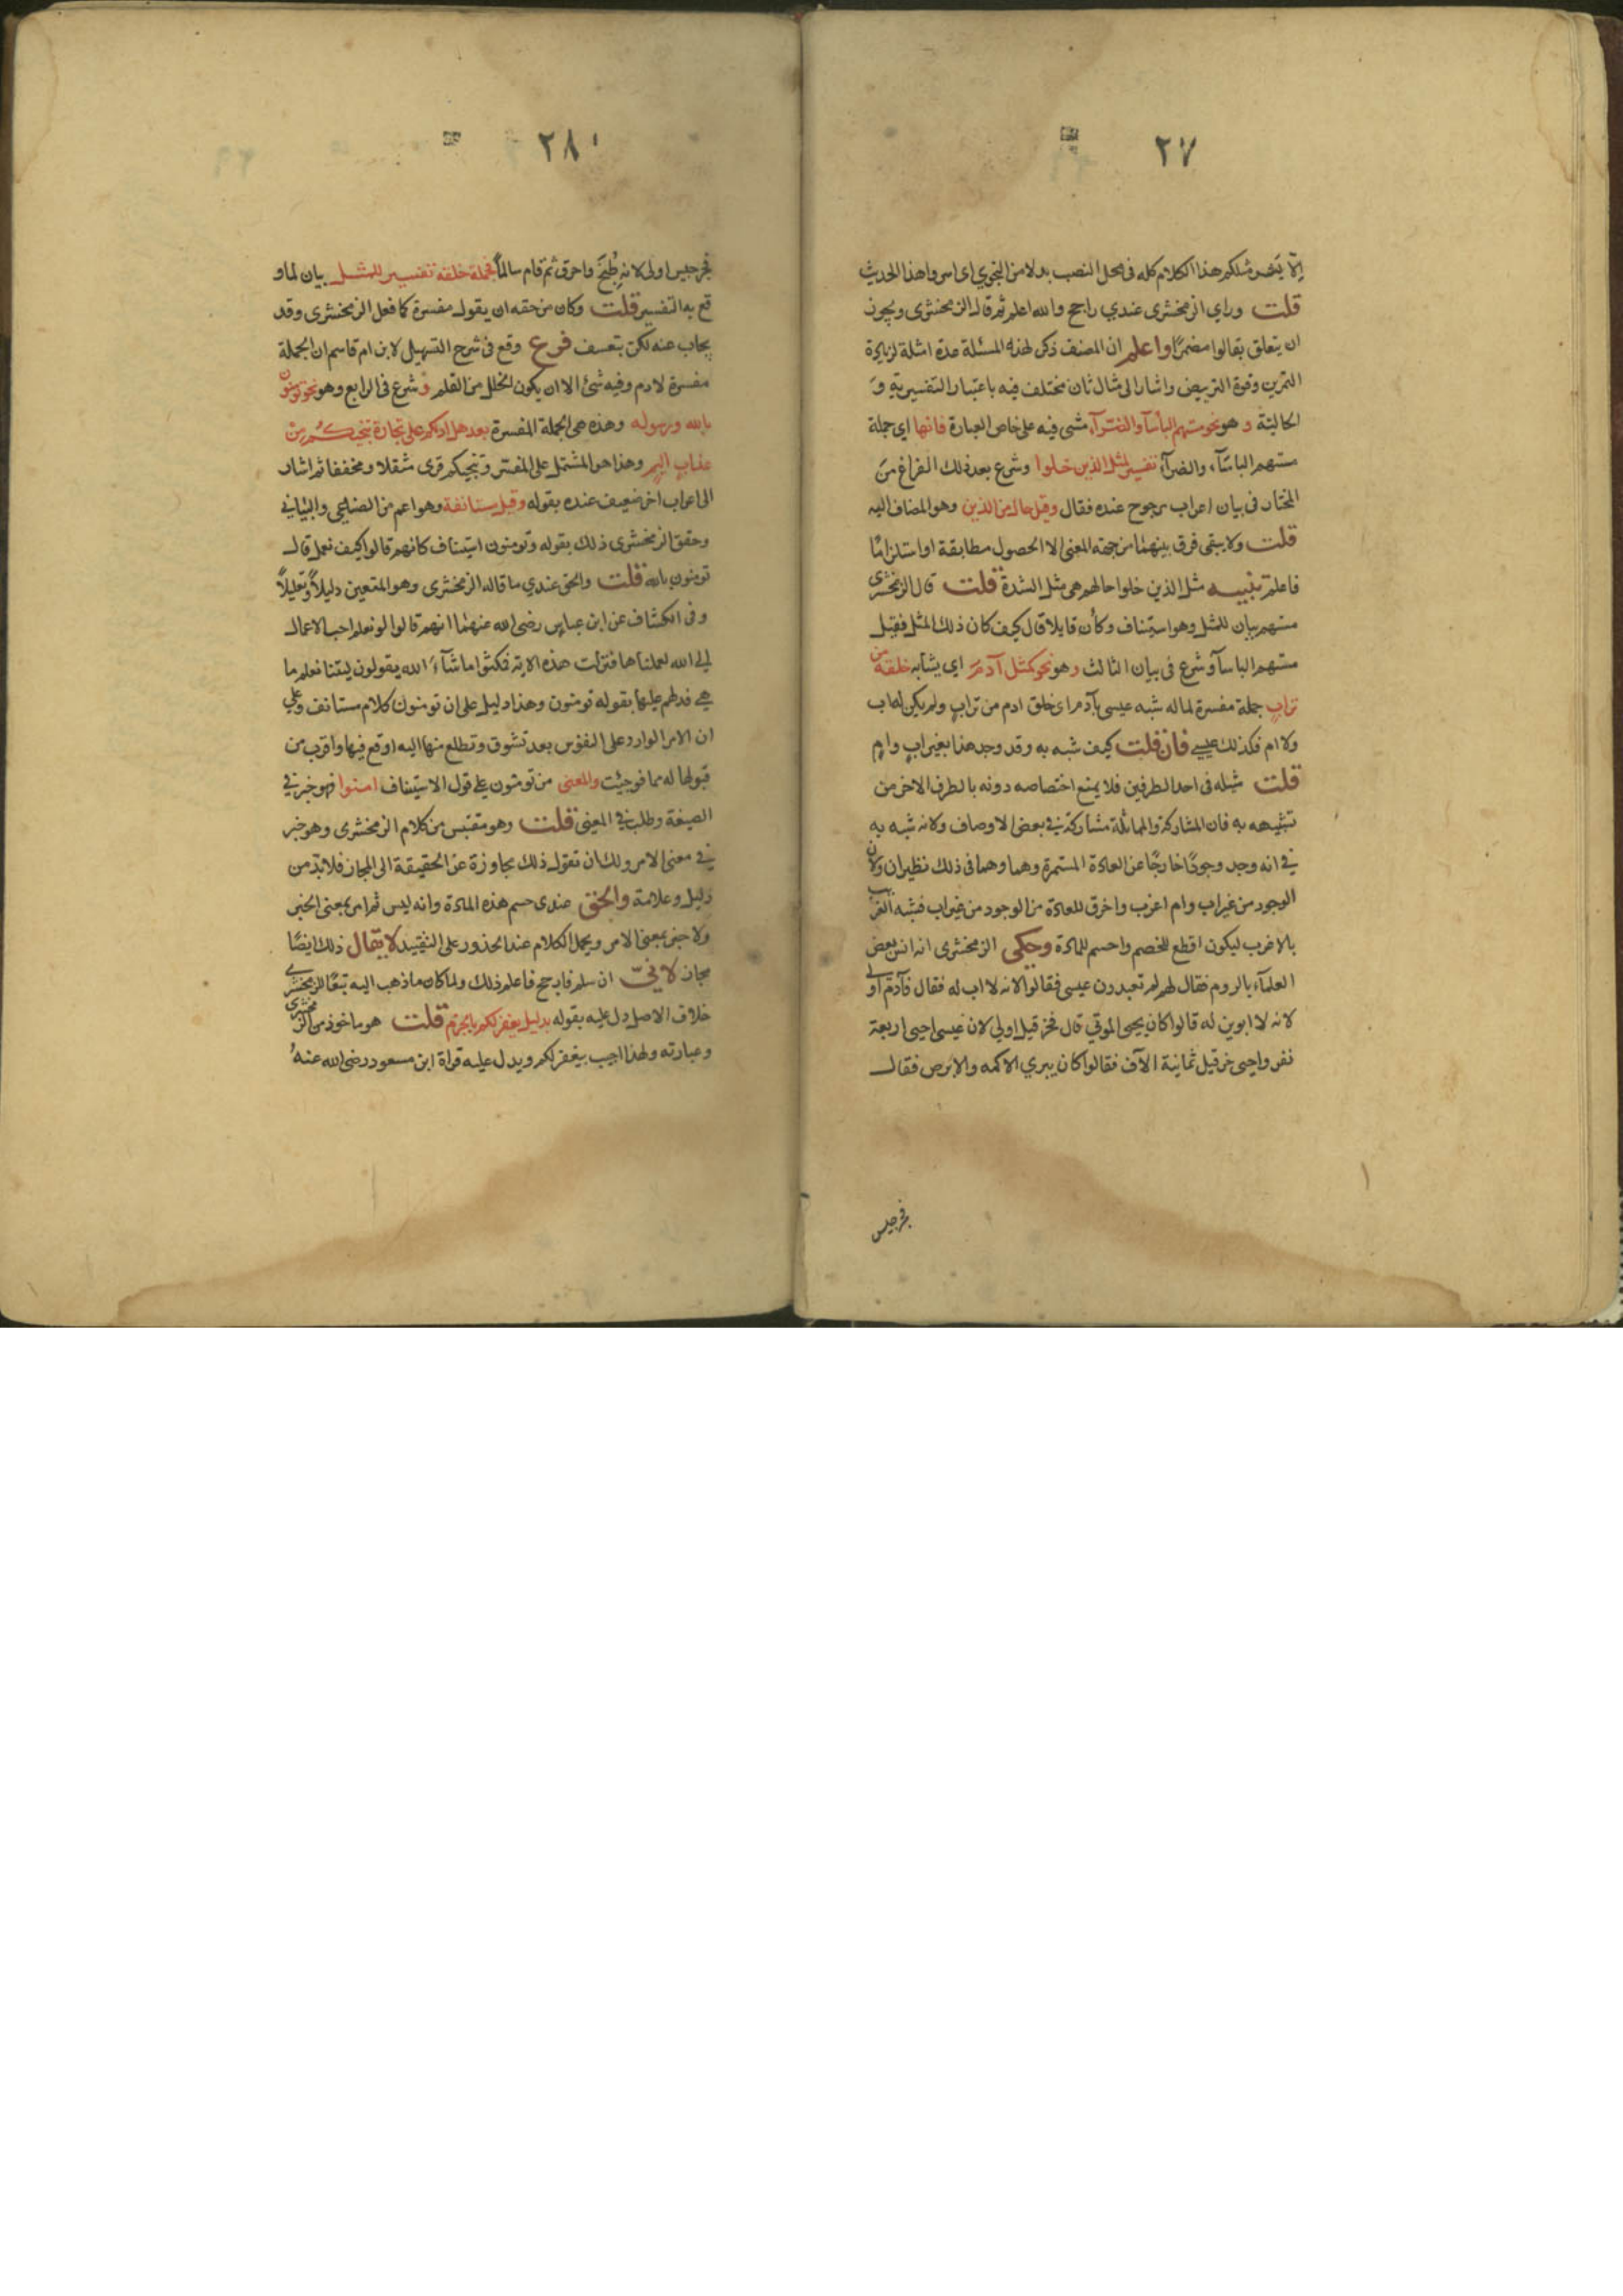 ٢٧
إلا بشر مثلكم هذا الكلام كله فى محل النصب بدلا من النجوي اى اسروا هذا الحديث
قلت وراي الزمخشرى عندي راجح والله اعلم ثم قال الزمخشرى ويجوز
ان يتعلق بقالوا مضمرًا واعلم ان المصنف ذكر لهذه المسئلة عدة امثلة لزيادة
التمرين وقوة التربيض واشار الى مثال ثان مختلف فيه باعتبار التفسيرية و
الحالية وهو نحو مستهم البأسآ والضرآء مشى فيه على خاص العبارة فانها اى جملة
مستهم الباسآء والضرآء تفسير لمثل الذين خلوا وشرع بعد ذلك الفراغ من
المختار فى بيان اعراب مرجوح عنده فقال وقيل حال من الذين وهو المضاف اليه
قلت ولا يبقى فرق بينهما من جهة المعنى الا الحصول مطابقة او استلزامًا
فاعلم تنبيه مثل الذين خلوا حالهم هى مثل الشدة قلت قال الزمخشرى
مستهم بيان للمثل وهو استيناف وكأن قايلا قال كيف كان ذلك المثل فقيل
مستهم الباسآ وشرع فى بيان الثالث وهو نحو كمثل آدم اي يشابه خلقه من
تراب جملة مفسرة لما له شبه عيسى بآدم اى خلق ادم من تراب ولم يكن له اب
ولا ام فكذلك عيسى فان قلت كيف شبه به وقد وجد هذا بغير اب وام
قلت مثيله فى احد الطرفين فلا يمنع اختصاصه دونه بالطرف الاخر من
تشبيهه به فان المشاركة والمماثلة مشاركة فى بعض الاوصاف ولانه شبه به
فى انه وجد وجودًا خارجًا عن العادة المستمرة وهما وهما فى ذلك نظيران ولان
الوجود من غير اب وام اغرب واخرق للعادة من الوجود من غير اب فشبه الغريب
بالاغرب ليكون اقطع للخصم واحسم للمادة وحكى الزمخشرى انه اسر بعض
العلمآء بالروم فقال لهم لم تعبدون عيسى فقالوا لانه لا اب له فقال فآدم اولى
لانه لا ابوين له قالوا كان يحيى الموتي قال فحزقيل اولي لان عيسى احيى اربعة
نفر واحيى حزقيل ثمانية الآف فقالوا كان يبري الاكمه والابرص فقال
فجرجيس
٢٨
فجرجيس اولى لانه طُبخ واحرق ثم قام سالمًا فجملة خلقه تفسير للمثل بيان لما و
قع به التفسير قلت وكان من حقه ان يقول مفسرة كما فعل الزمخشرى وقد
يجاب عنه لكن بتعسف فرع وقع فى شرح التسهيل لابن ام قاسم ان الجملة
مفسرة لادم وفيه شئ الا ان يكون الخلل من القلم وشرع فى الرابع وهو نحو تومنون
بالله ورسوله وهذه هى الجملة المفسرة بعد هل ادلكم على تجارة تنجيكم من
عذاب اليم وهذا هو المشتمل على المفسر وتنجيكم قرى مثقلا ومخففا ثم اشار
الى اعراب اخر ضعيف عنده بقوله وقيل مستانفة وهو اعم من الصناعى والبياني
وحقق الزمخشرى ذلك بقوله وتومنون استيناف كانهم قالوا كيف نعمل قال
تومنون بالله قلت والحق عندي ما قاله الزمخشرى وهو المتعين دليلاً وتعليلاً
وفى الكشاف عن ابن عباس رضى الله عنهما انهم قالوا لو نعلم احب الاعمال
الي الله لعملناها فنزلت هذه الاية فمكثوا ما شآء الله يقولون ليتنا نعلم ما
هي فدلهم عليها بقوله تومنون وهذا دليل على ان تومنون كلام مستانف وعلي
ان الامر الوارد على النفوس بعد تشوق وتطلع منها اليه اوقع فيها واقرب من
قبولها له مما فوجئت والمعنى من تومنون على قول الاستيناف امنوا فهو خبر في
الصيغة وطلب في المعنى قلت وهو مقتبس من كلام الزمخشرى وهو خبر
في معنى الامر ولك ان تقول ذلك مجاوزة عن الحقيقة الى المجاز فلا بد من
دليل وعلامة والحق عندى حسم هذه المادة وانه ليس ثم امر بمعنى الخبر
ولا خبر بمعنى الامر ويحمل الكلام عند المحذور على التقييد لا يقال ذلك ايضًا
مجاز لانيّ ان سلم فارجح فاعلم ذلك ولما كان ما ذهب اليه تبعًا للزمخشري
خلاف الاصل دل عليه بقوله بدليل يغفر لكم بالجزم قلت هو ماخوذ من الزمخشرى
وعبارته ولهذا اجيب بيغفر لكم ويدل عليه قراة ابن مسعود رضى الله عنهُ